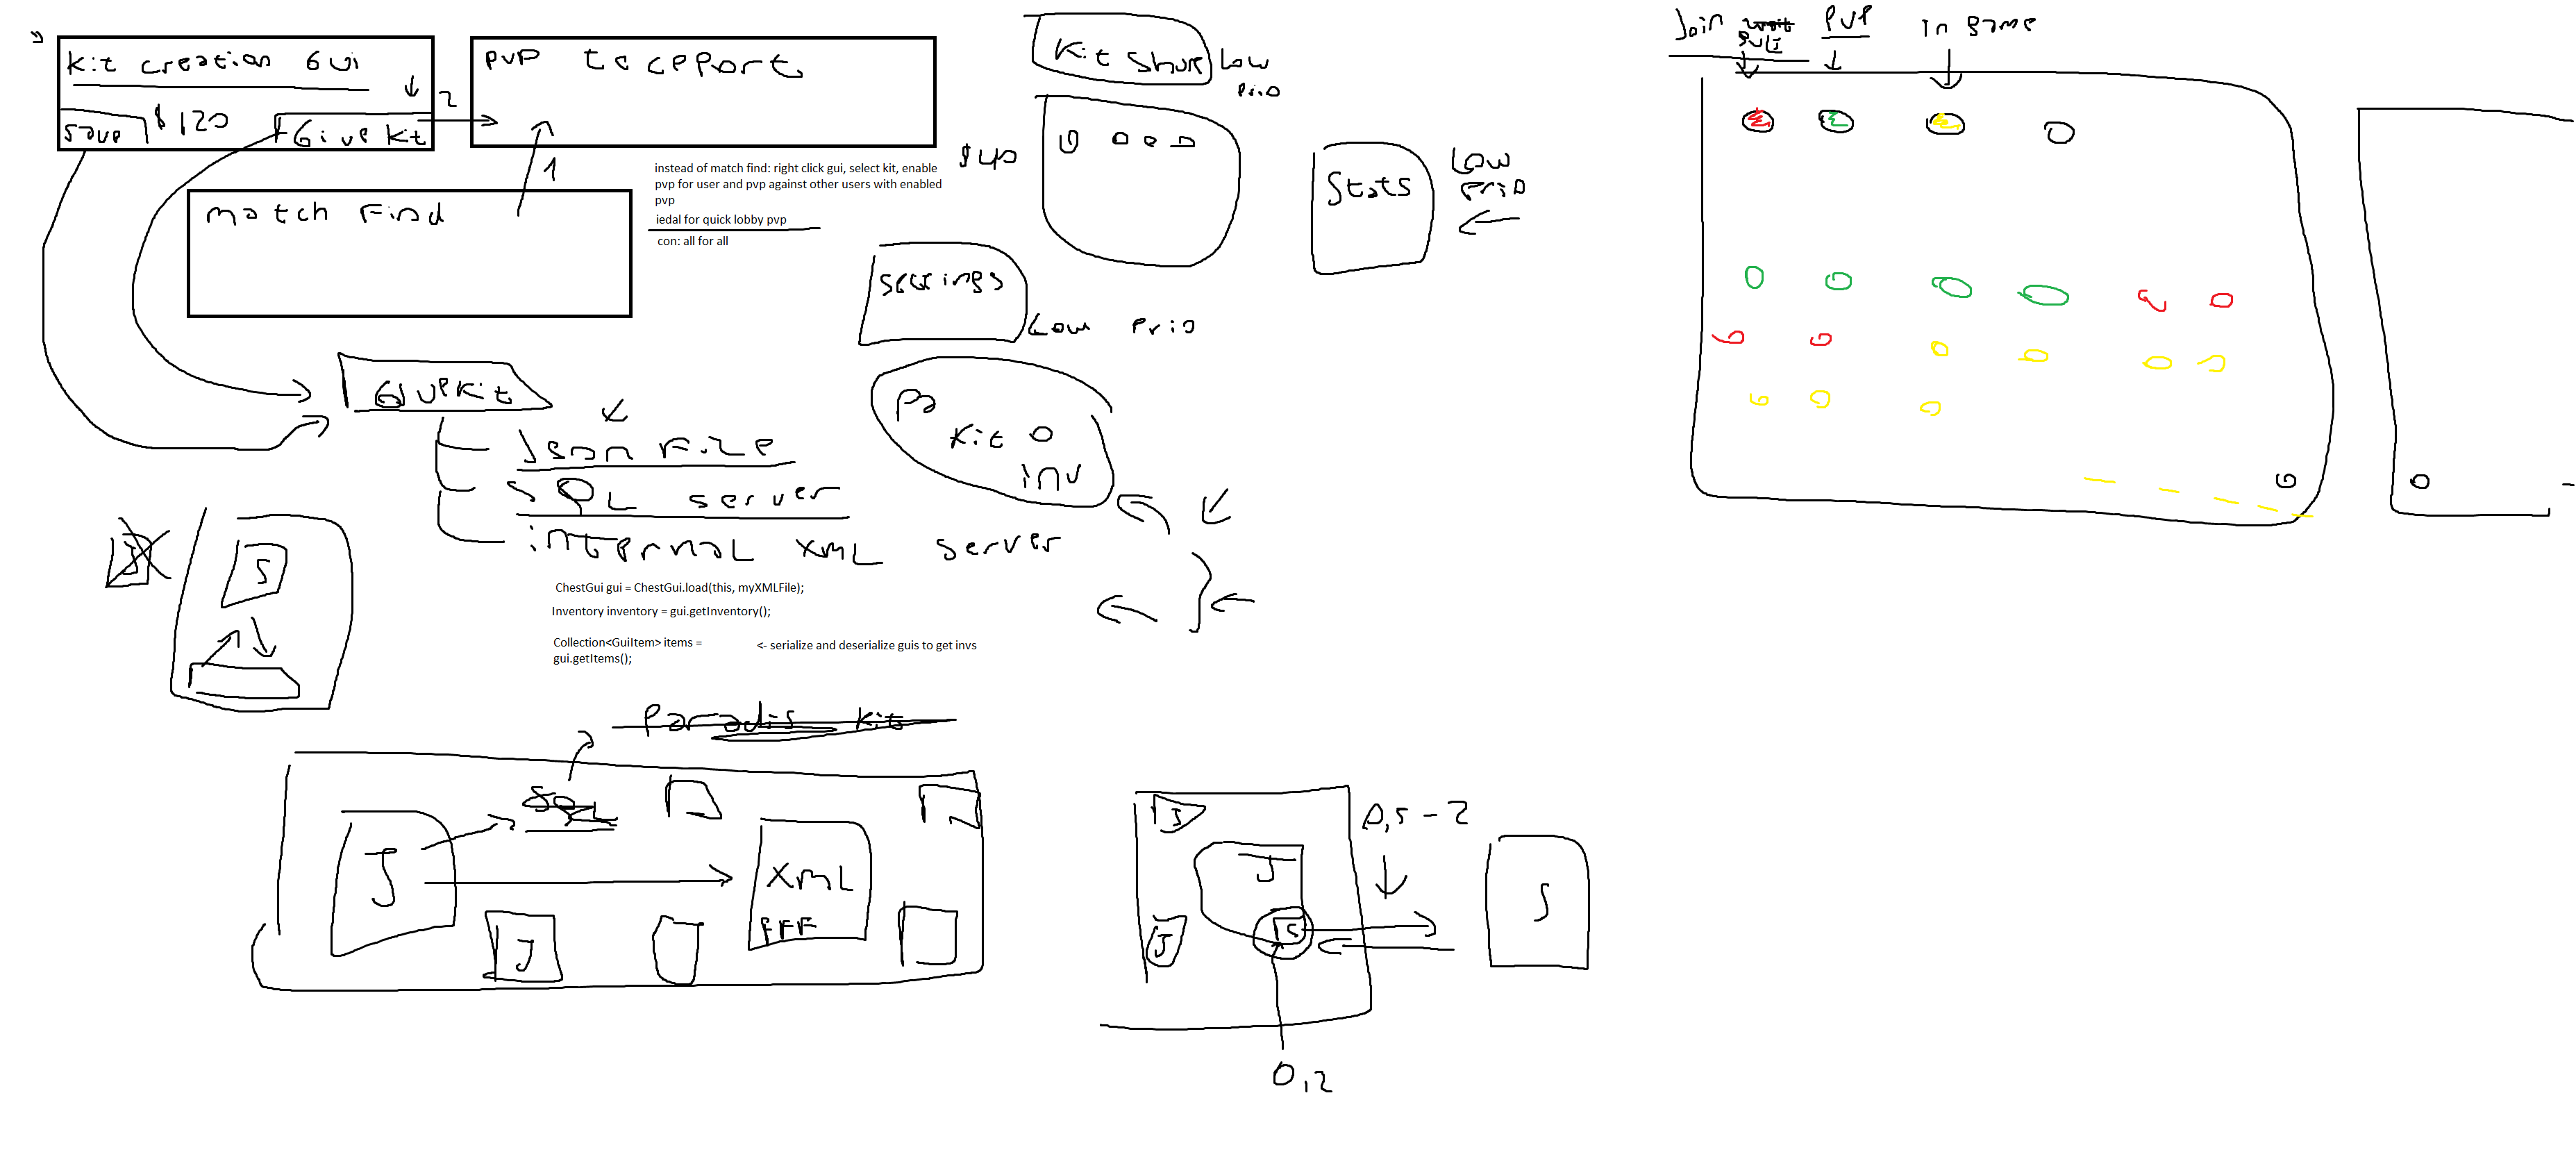 Kit creation Gui
save
$120
Give Kit
2
PVP teleport
1
match Find
instead of match find: right click gui, select kit, enable
pvp for user and pvp against other users with enabled
pvp
iedal for quick lobby pvp
con: all for all
Kit Share
Low
Prio
Stats
Low
Prio
settings
Low Prio
Kit
inv
GiveKit
Json File
SQL server
internal XML server
ChestGui gui = ChestGui.load(this, myXMLFile);
Inventory inventory = gui.getInventory();
Collection<GuiItem> items =
gui.getItems();
<- serialize and deserialize guis to get invs
S
Paradis Kit
SQL
J
XML
FFF
J
J
J
S
J
0,5-2
S
0,2
Join
PVP
in game